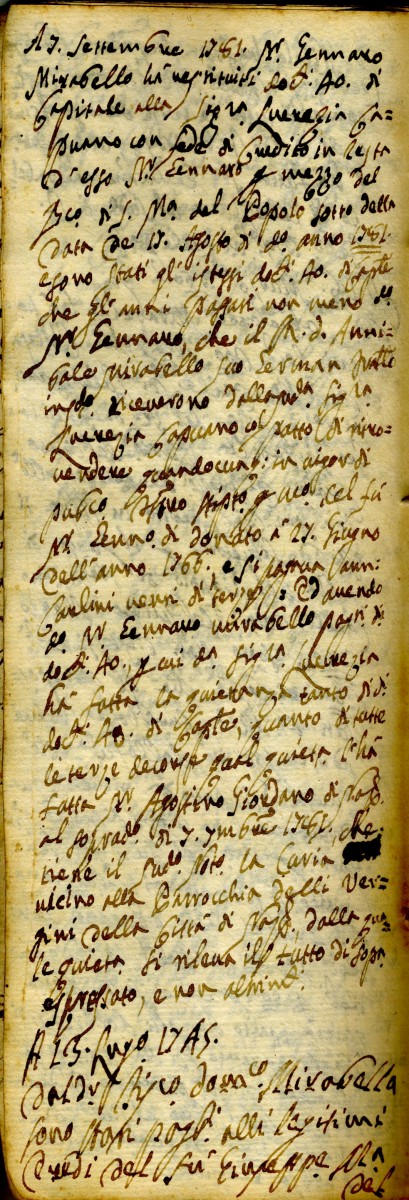 A 7. Settembre 1781. Nr. Gennaro
Mirabello ha restituiti doc.ti 40. di
Capitale alla Sig.ra Lucrezia Ca=
puano con fede di Credito in testa
d'esso Nr. Gennaro p mezzo del
Bco. di S. Ma. del Popolo sotto della
data de 17. Agosto di do. anno 1781.
e sono stati gl'istessi doc.ti 40. di Caple
che gl'anni passati non meno do.
Nr. Gennaro, che il R. d. Anni
bale Mirabello suo German Fratto
insdo. riceverono dalla sud.a Sig.ra
Lucrezia Capuano col patto di ritro=
vendere quandocunq: in vigor di
pubco. Istro stipto p mo. del fù
Nr. Genno. di Donato a 27. Giugno
dell'anno 1766. e si pagava l'ann:
Carlini venti di terze
do. Nr Gennaro Mirabello pagti di
doc.ti 40., p cui da. Sig.ra Lucrezia
ha fatta la quietanza tanto di di
doc.ti 40. di Caple, quanto di tutte
le terze decorse qual quieta. l'hà
fatta Nr. Agostino Giordano di Nap.
al soprado. di 7. 7mbre 1781. che
tiene il sudo. Noto. la Curia
vicino alla Parrocchia delli Ver=
gini della Città di Nap. dalla qua=
le quieta. si rileva il tutto di sopa.
espressato, e non altrim.
A 13. Lugo 1745.
Dal Dr. Fisco domco. Mirabella
sono stati pagti. alli legitimi
Eredi del fù Giuseppe Ma
del